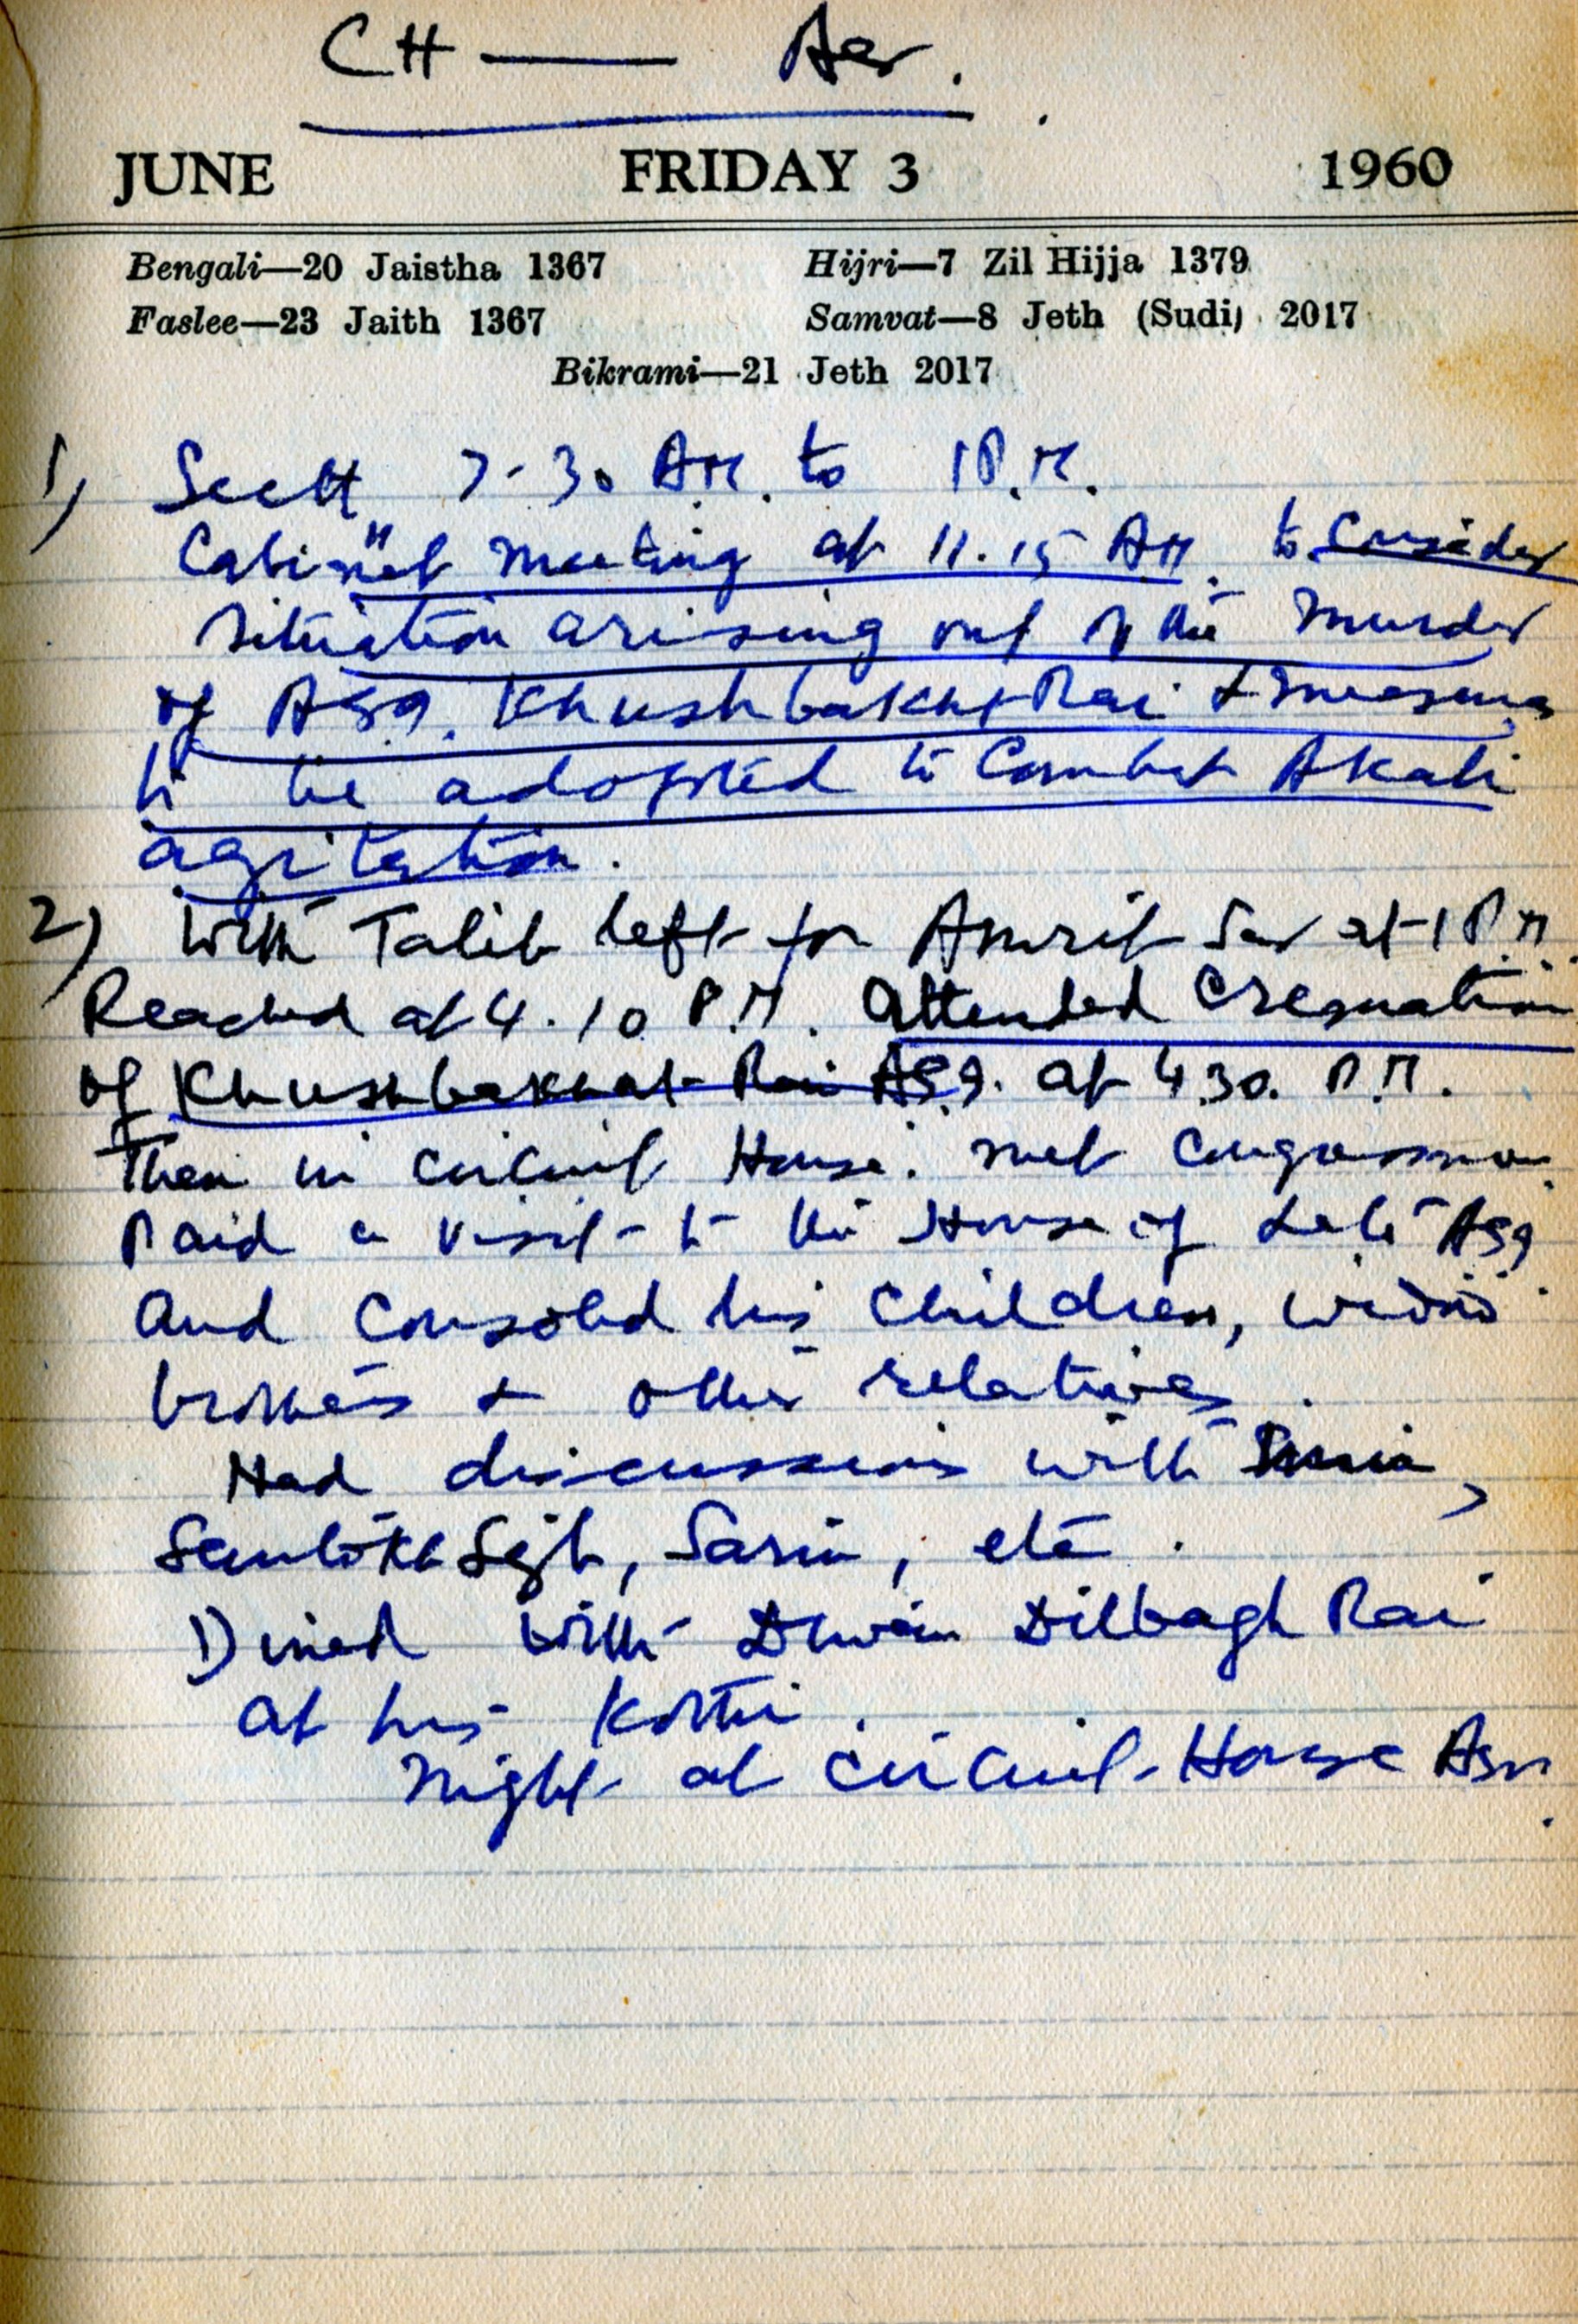 CH — Asr.
JUNE FRIDAY 3 1960
Bengali—20 Jaistha 1367 Hijri—7 Zil Hijja 1379
Faslee—23 Jaith 1367 Samvat—8 Jeth (Sudi) 2017
Bikrami—21 Jeth 2017
1) Sectt 7-30 AM. to 1 P.M.
Cabinet meeting at 11.15 AM. to consider
situation arising out of the murder
of ASJ. Khushbakht Rai & measures
to be adopted to combat Akali
agitation.
2) With Talib left for Amrit Sar at 1 P.M.
Reached at 4.10 P.M. attended cremation
of Khushbakhat Rai ASJ. at 4.30. P.M.
Then in circuit House. met congressmen.
Paid a visit to the House of Late ASJ
and consoled his children, widow
brothers & other relatives.
Had discussions with
Santokh Sgh, Sarin, etc.
Dined with Diwan Dilbagh Rai
at his Kothi.
Night at circuit House Asr.